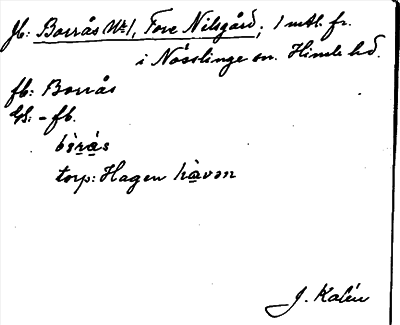 Jb: Borrås N:o 1, Fore Nilsgård; 1 mtl. fr.
i Nösslinge sn. Himle hd.
fb: Borrås
Gs: - fb.
bòrås
torp: Hagen hàvən
J. Kalén